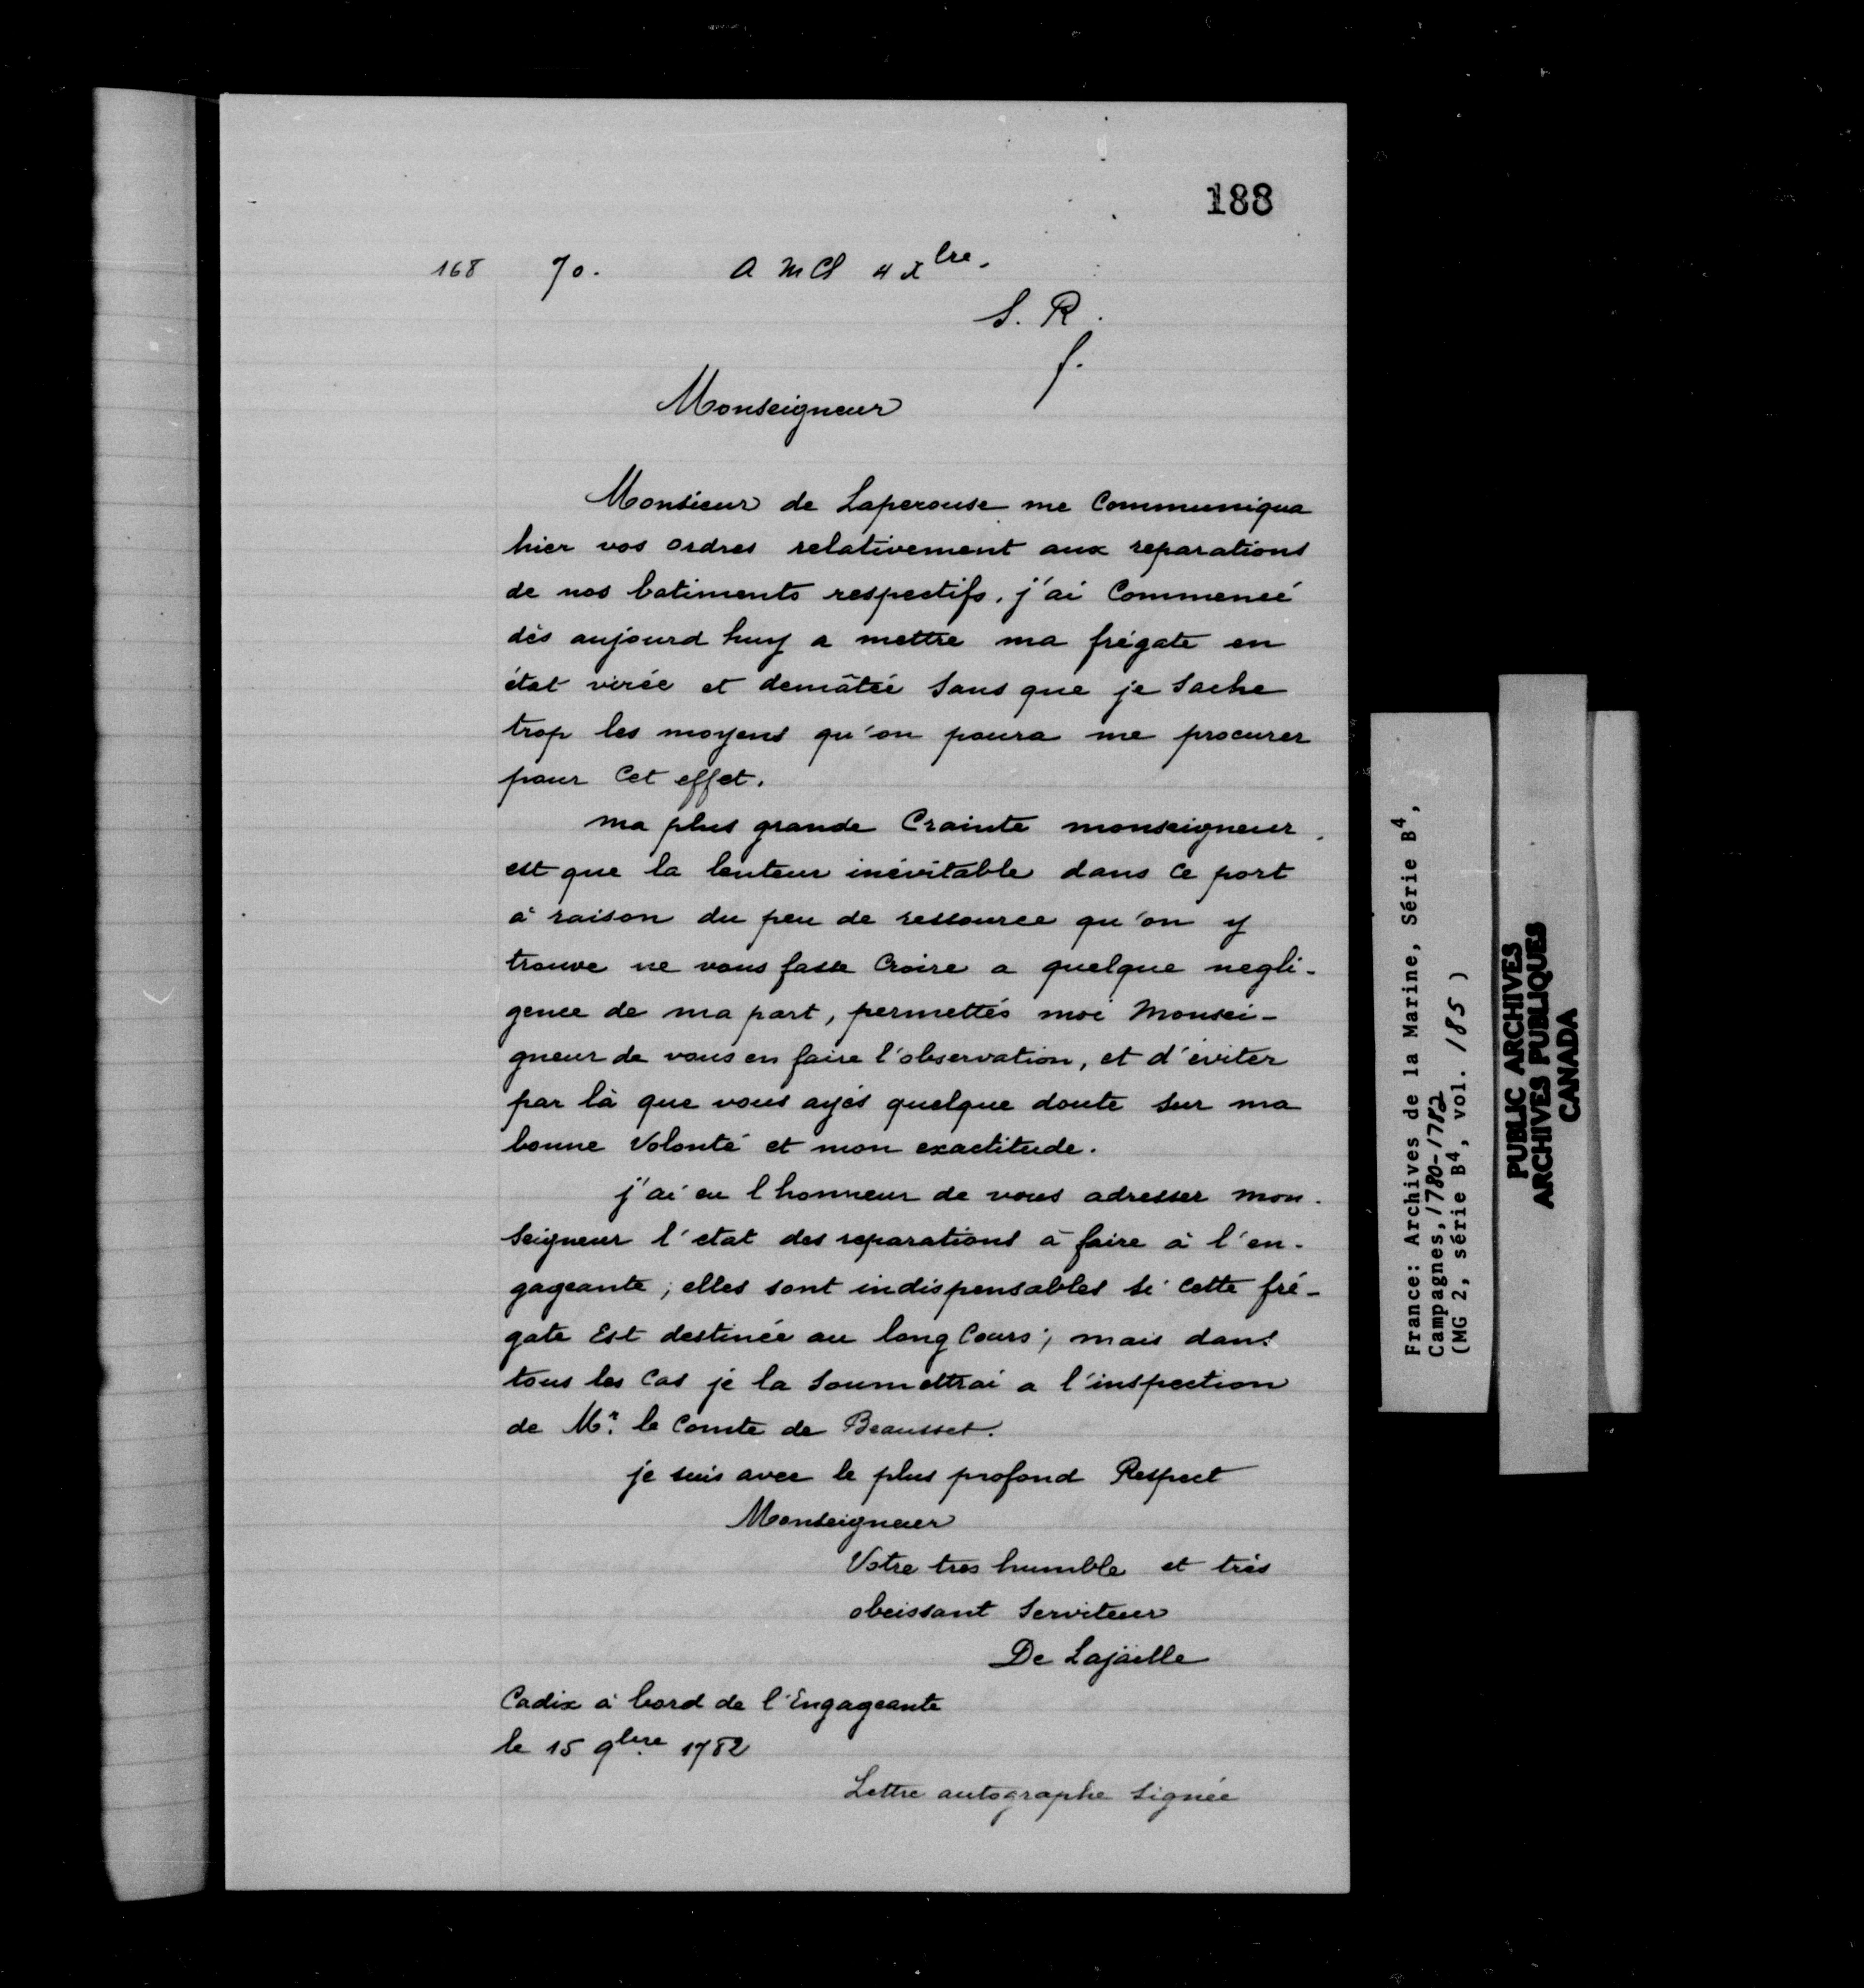 188
168 70. A M Cl 4 Xbre.
S. R.
f.
Monseigneur
Monsieur de Laperouse me Communiqua
hier vos ordres relativement aux reparations
de nos batiments respectifs. j'ai Commencé
dès aujourd huy a mettre ma frégate en
état virée et demâtée sans que je sache
trop les moyens qu'on poura me procurer
pour Cet effet.
ma plus grande Crainte monseigneur
est que la lenteur inévitable dans Ce port
à raison du peu de ressource qu'on y
trouve ne vous fasse Croire a quelque negli-
gence de ma part, permettés moi Monsei-
gneur de vous en faire l'observation, et d'éviter
par là que vous ayés quelque doute sur ma
bonne Volonté et mon exactitude.
j'ai eu l honneur de vous adresser mon-
seigneur l'etat des reparations à faire à l'en-
gageante; elles sont indispensables si cette fré-
gate Est destinée au long Cours; mais dans
tous les Cas je la soumettrai a l'inspection
de Mr. le Comte de Beausset.
je suis avec le plus profond Respect
Monseigneur
Votre tres humble et très
obeissant Serviteur
De Lajaille
Cadix à bord de l'Engageante
le 15 9bre 1782
Lettre autographe signée
France: Archives de la Marine, Série B4,
Campagnes, 1780-1782
(MG 2, série B4, vol. 185)
PUBLIC ARCHIVES
ARCHIVES PUBLIQUES
CANADA